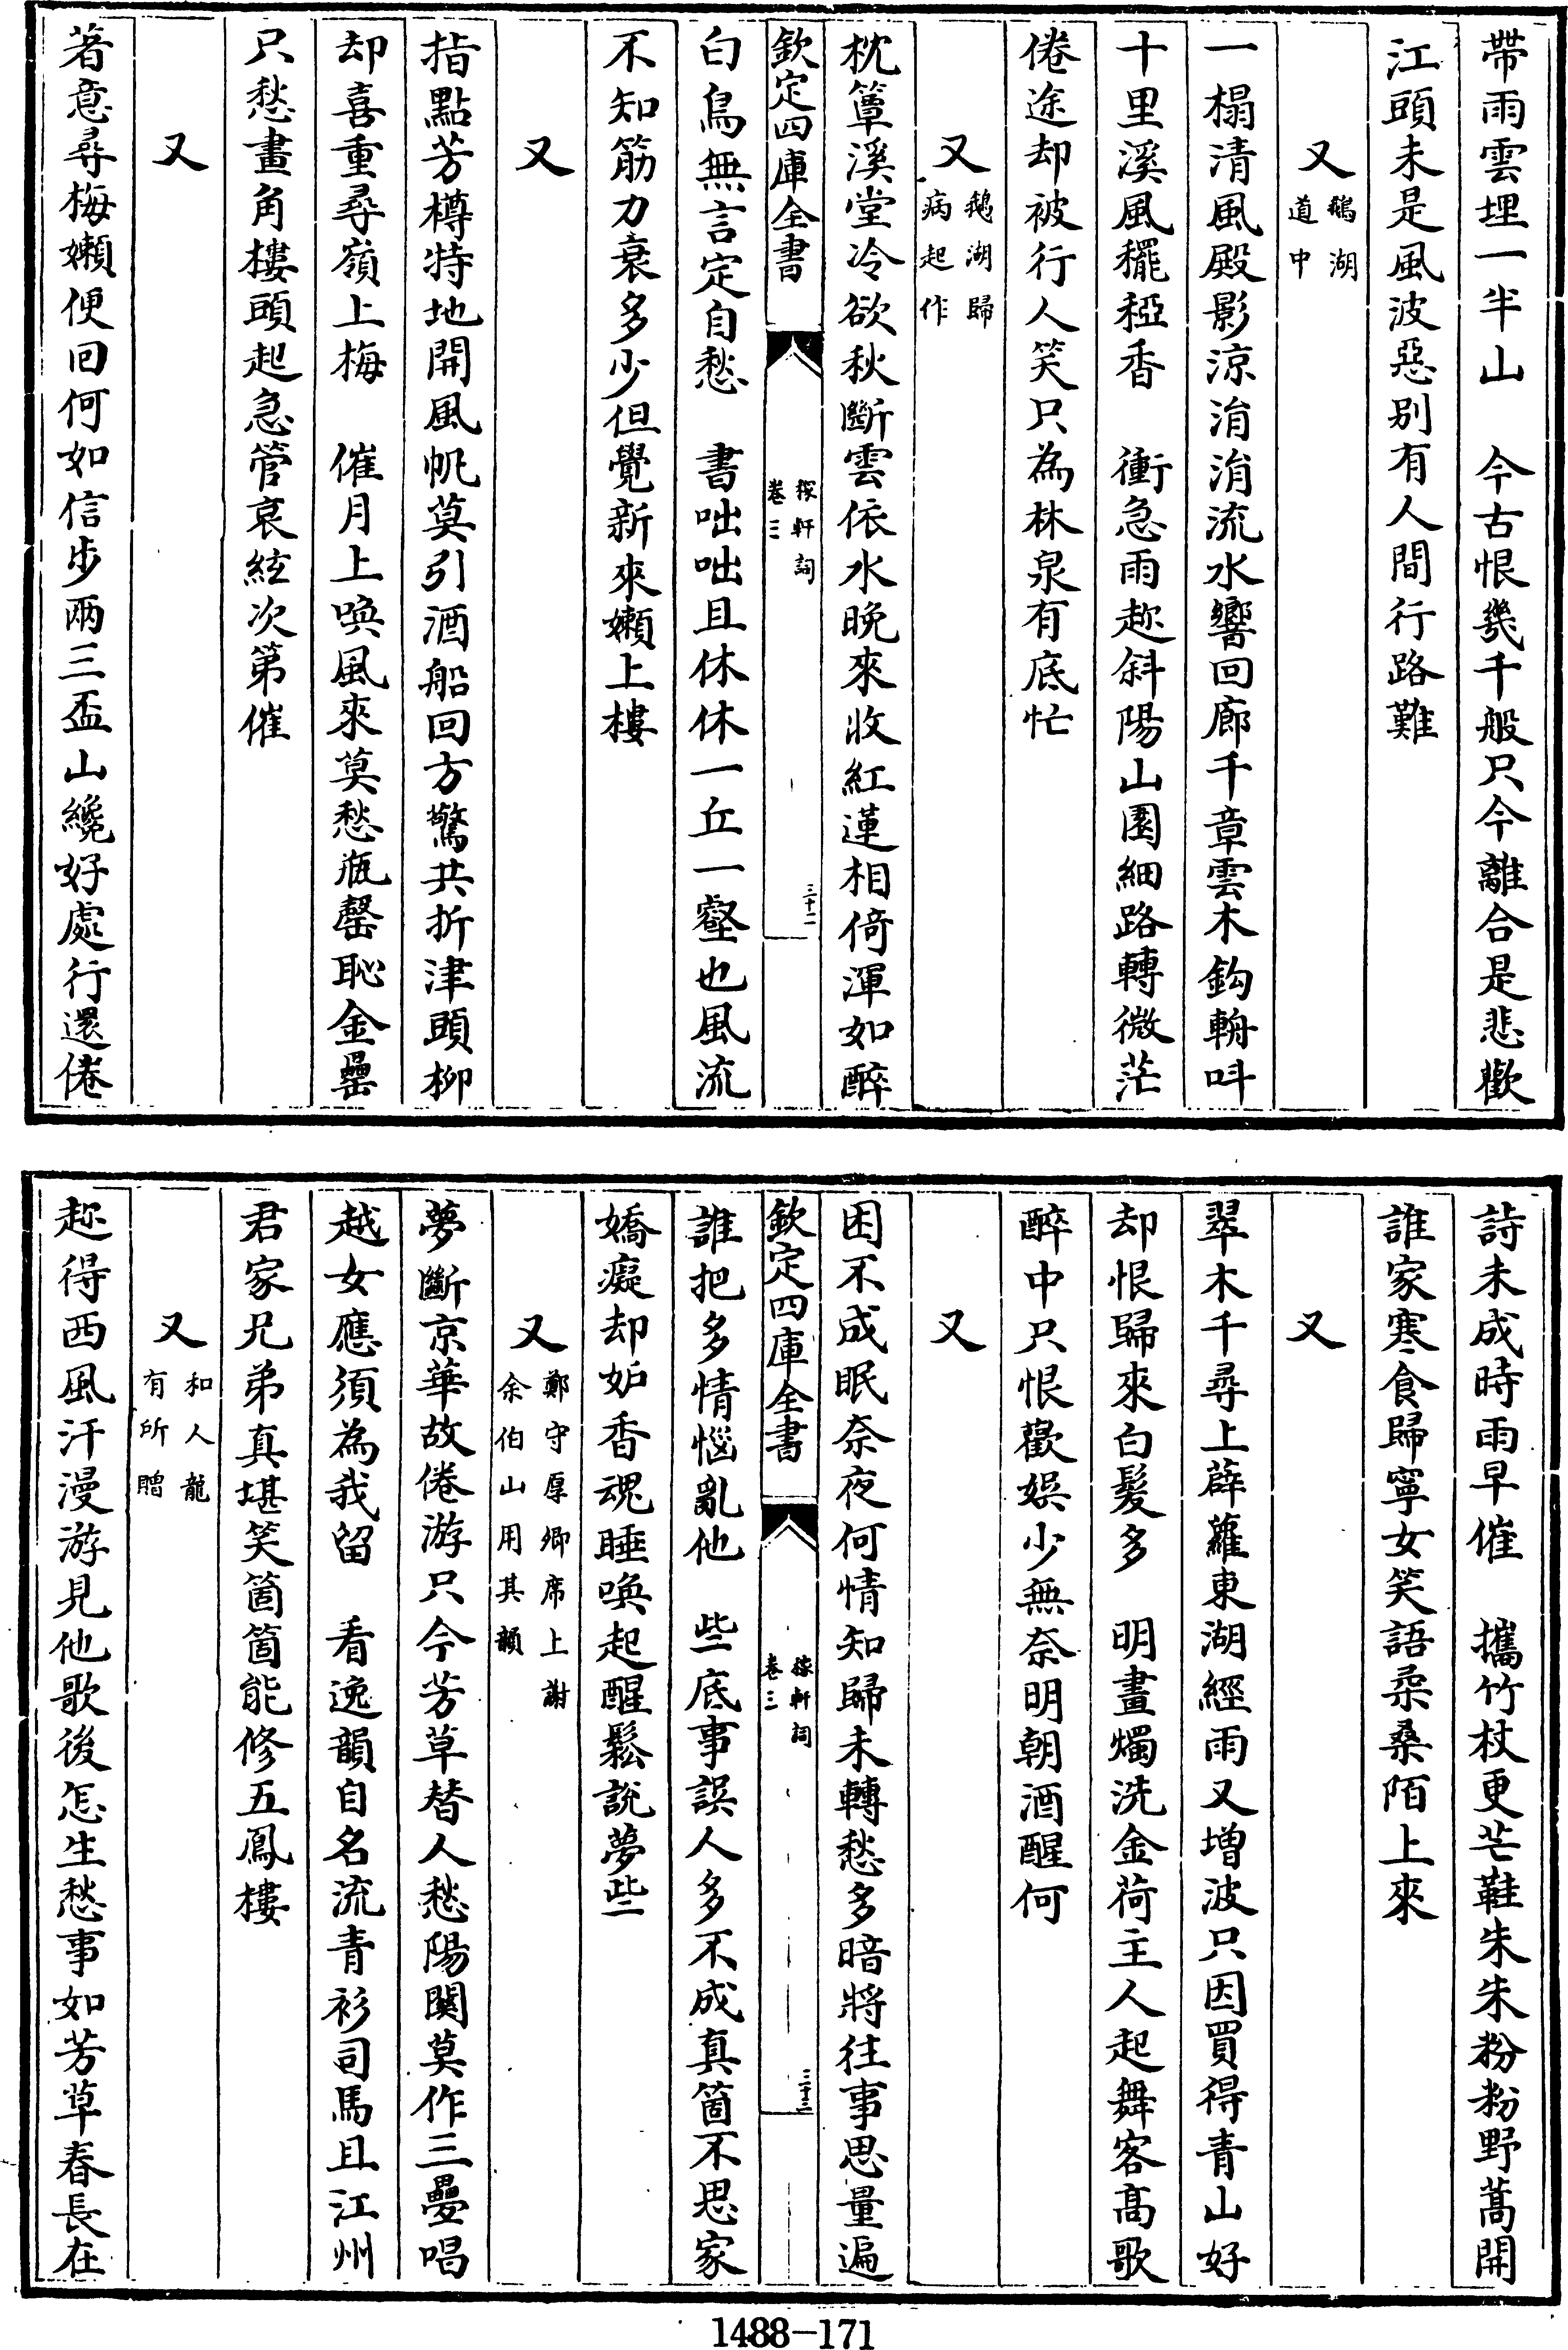 帶雨雲埋一半山　今古恨幾千般只今離合是悲歡
江頭未是風波惡别有人間行路難
又鵝湖
道中
一榻清風殿影涼涓涓流水響回廊千章雲木鈎輈呌
十里溪風䆉稏香　衝急雨趂斜陽山園細路轉微茫
倦途却被行人笑只為林泉有底忙
又鵝湖歸
病起作
枕簟溪堂冷欲秋斷雲依水晚來收紅蓮相倚渾如醉
欽定四庫全書
稼軒詞
卷三
三十二
白鳥無言定自愁　書咄咄且休休一丘一壑也風流
不知筋力衰多少但覺新來嬾上樓
又
指點芳樽特地開風帆莫引酒船回方驚共折津頭柳
却喜重尋嶺上梅　催月上喚風來莫愁瓶罄恥金罍
只愁畫角樓頭起急管哀絃次第催
又
著意尋梅嬾便回何如信步兩三盃山纔好處行還倦
詩未成時雨早催　攜竹杖更芒鞋朱朱粉粉野蒿開
誰家寒食歸寧女笑語柔桑陌上來
又
翠木千尋上薜蘿東湖經雨又增波只因買得青山好
却恨歸來白髮多　明畫燭洗金荷主人起舞客高歌
醉中只恨歡娯少無奈明朝酒醒何
又
困不成眠奈夜何情知歸未轉愁多暗將往事思量遍
欽定四庫全書
稼軒詞
卷三
三十三
誰把多情惱亂他　些底事誤人多不成真箇不思家
嬌癡却妬香魂睡喚起醒鬆說夢些
又鄭守厚卿席上謝
余伯山用其韻
夢斷京華故倦游只今芳草替人愁陽關莫作三疊唱
越女應須為我留　看逸韻自名流青衫司馬且江州
君家兄弟真堪笑箇箇能修五鳳樓
又和人龍
有所贈
趂得西風汗漫游見他歌後怎生愁事如芳草春長在
1488-171